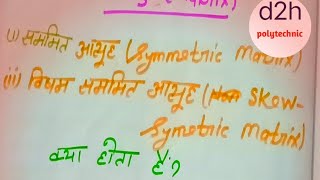 d2h
polytechnic
(i) सममित आव्यूह (Symmetric Matrix)
(ii) विषम सममित आव्यूह ( Skew-
Symetric Matrix)
क्या होता है?